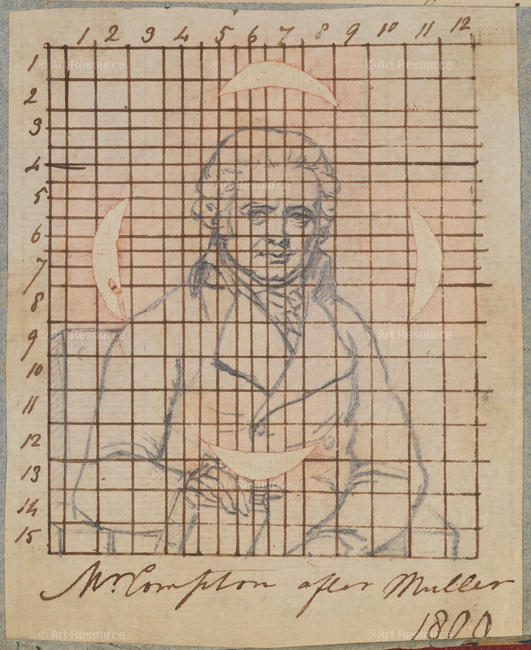 1 2 3 4 5 6 7 8 9 10 11 12
1
2
3
4
5
6
7
8
9
10
11
12
13
14
15
Mr. Compton after Muller
1800
© Art Resource
© Art Resource
© Art Resource
© Art Resource
© Art Resource
© Art Resource